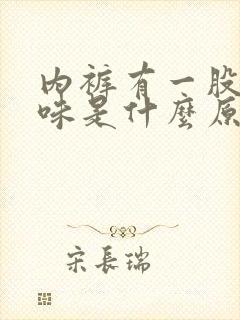 内裤有一股
味是什麼原
宋長瑞